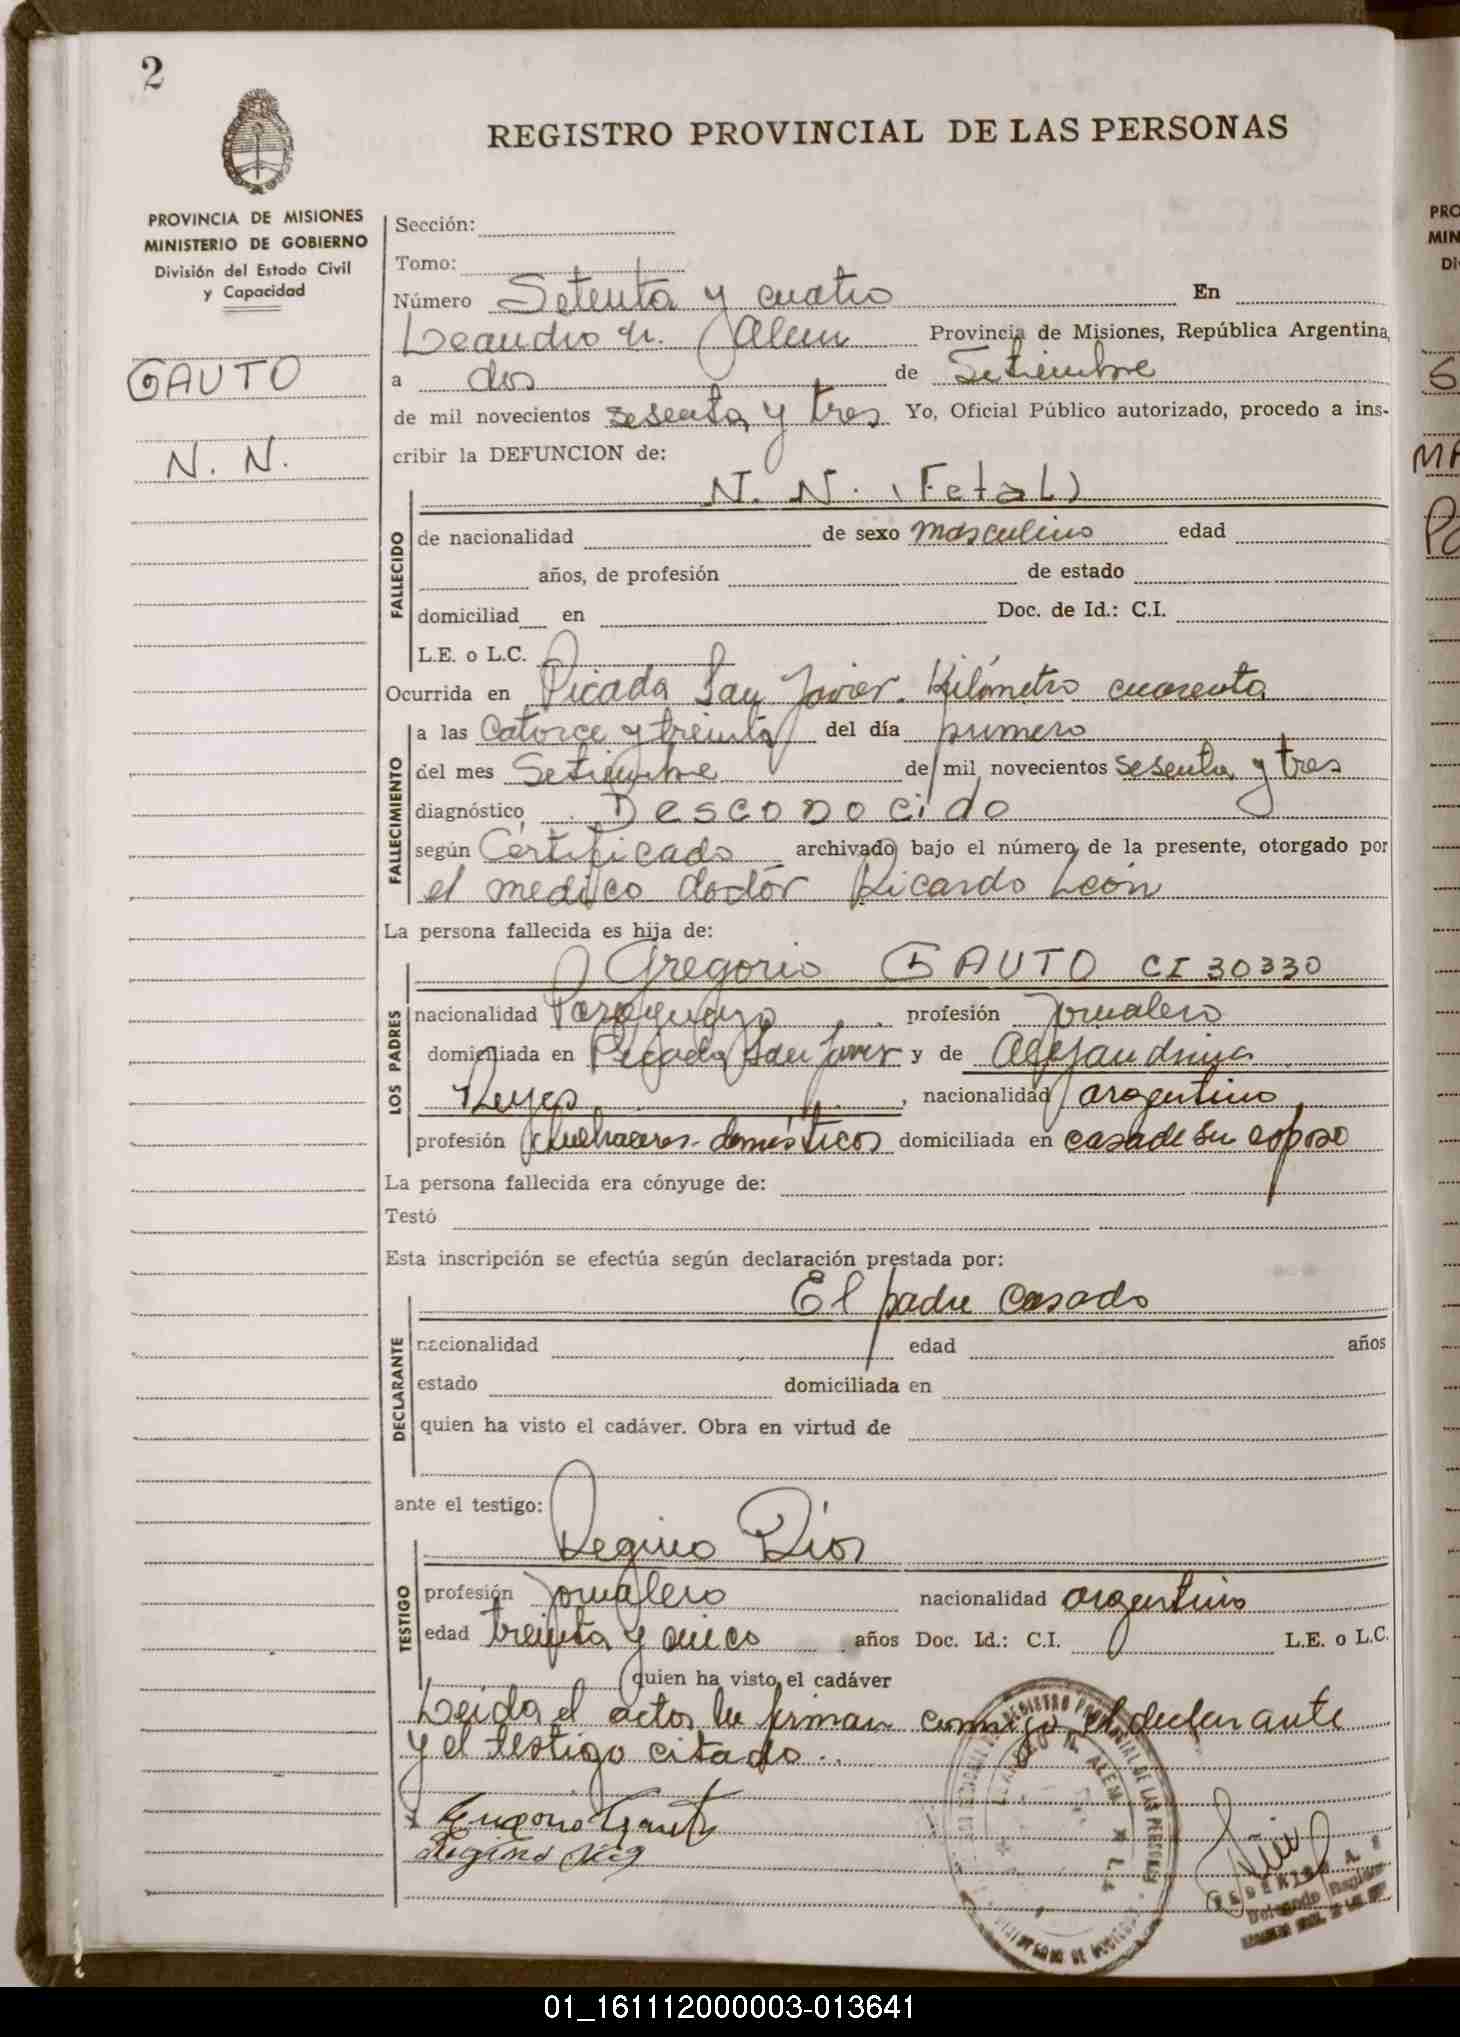 2
REGISTRO PROVINCIAL DE LAS PERSONAS
PROVINCIA DE MISIONES
MINISTERIO DE GOBIERNO
División del Estado Civil
y Capacidad
GAUTO
N. N.
Sección:
Tomo:
Número Setenta y cuatro En
Leandro N. Alem Provincia de Misiones, República Argentina,
a dos de Setiembre
de mil novecientos sesenta y tres Yo, Oficial Público autorizado, procedo a ins-
cribir la DEFUNCION de:
N. N. (Fetal)
FALLECIDO
de nacionalidad de sexo masculino edad
años, de profesión de estado
domiciliad en Doc. de Id.: C.I.
L.E. o L.C.
Ocurrida en Picada San Javier. Kilómetro cuarenta
FALLECIMIENTO
a las Catorce y treinta del día primero
del mes Setiembre de mil novecientos sesenta y tres
diagnóstico Desconocido
según Certificado archivado bajo el número de la presente, otorgado por
el medico doctór Ricardo León
La persona fallecida es hija de:
Gregorio GAUTO CI 30330
LOS PADRES
nacionalidad Paraguayo profesión Jornalero
domiciliada en Picada San Javier y de Alejandrina
Reyes, nacionalidad argentino
profesión quehaceres domésticos domiciliada en casa de su esposo
La persona fallecida era cónyuge de:
Testó
Esta inscripción se efectúa según declaración prestada por:
El padre casado
DECLARANTE
nacionalidad edad años
estado domiciliada en
quien ha visto el cadáver. Obra en virtud de
ante el testigo:
Regino Ríos
TESTIGO
profesión Jornalero nacionalidad argentino
edad treinta y cinco años Doc. Id.: C.I. L.E. o L.C.
quien ha visto el cadáver
Leida el acta la firman conmigo el declarante
y el testigo citado..
Gregorio Gauto
Regino
REGISTRO PROVINCIAL DE LAS PERSONAS
LEANDRO N. ALEM
FEDERICO A.
Delegado
PRO
MIN
Di
01_161112000003-013641